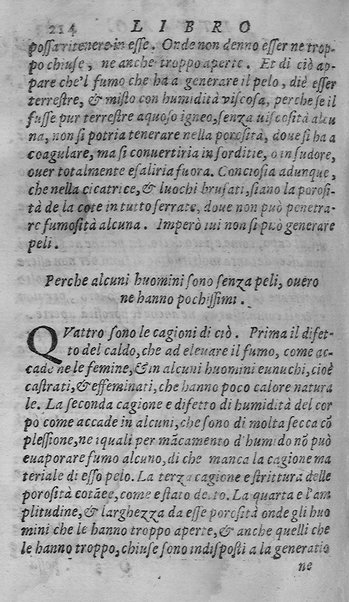 214 LIBRO
possa ritenere in esse. Onde non denno esser ne trop-
po chiuse, ne anche troppo aperte. Et di ciò ap-
pare che'l fumo che ha a generare il pelo, diè esser
terrestre, & misto con humidità viscosa, perche se il
fusse pur terrestre aquoso igneo, senza viscosità alcu
na, non si potria tenerare nella porosità, doue si ha a
coagulare, ma si conuertiria in sorditie, o in sudore,
ouer totalmente esaliria fuora. Conciosia adunque,
che nella cicatrice, & luochi brusati, siano la porosi-
tà de la cote in tutto serrate, doue non può penetra-
re fumosità alcuna. Imperò iui non si può generare
peli.
Perche alcuni huomini sono senza peli, ouero
ne hanno pochissimi.
QVattro sono le cagioni di ciò. Prima il difet-
to del caldo, che ad eleuare il fumo, come ac-
cade ne le femine, & in alcuni huomini eunuchi, cioè
castrati, & effeminati, che hanno poco calore natura
le. La seconda cagione e difetto di humidità del cor
po come accade in alcuni, che sono di molta secca cō
plessione, ne i quali per mācamento d'humido nō può
euaporare fumo alcuno, di che manca la cagione ma
teriale di esso pelo. La terza cagione e strittura delle
porosità cotāee, come e stato detto. La quarta e l'am
plitudine, & larghezza da esse porosità onde gli huo
mini che le hanno troppo aperte, & anche quelli che
le hanno troppo, chiuse sono indisposti a la generatio
ne